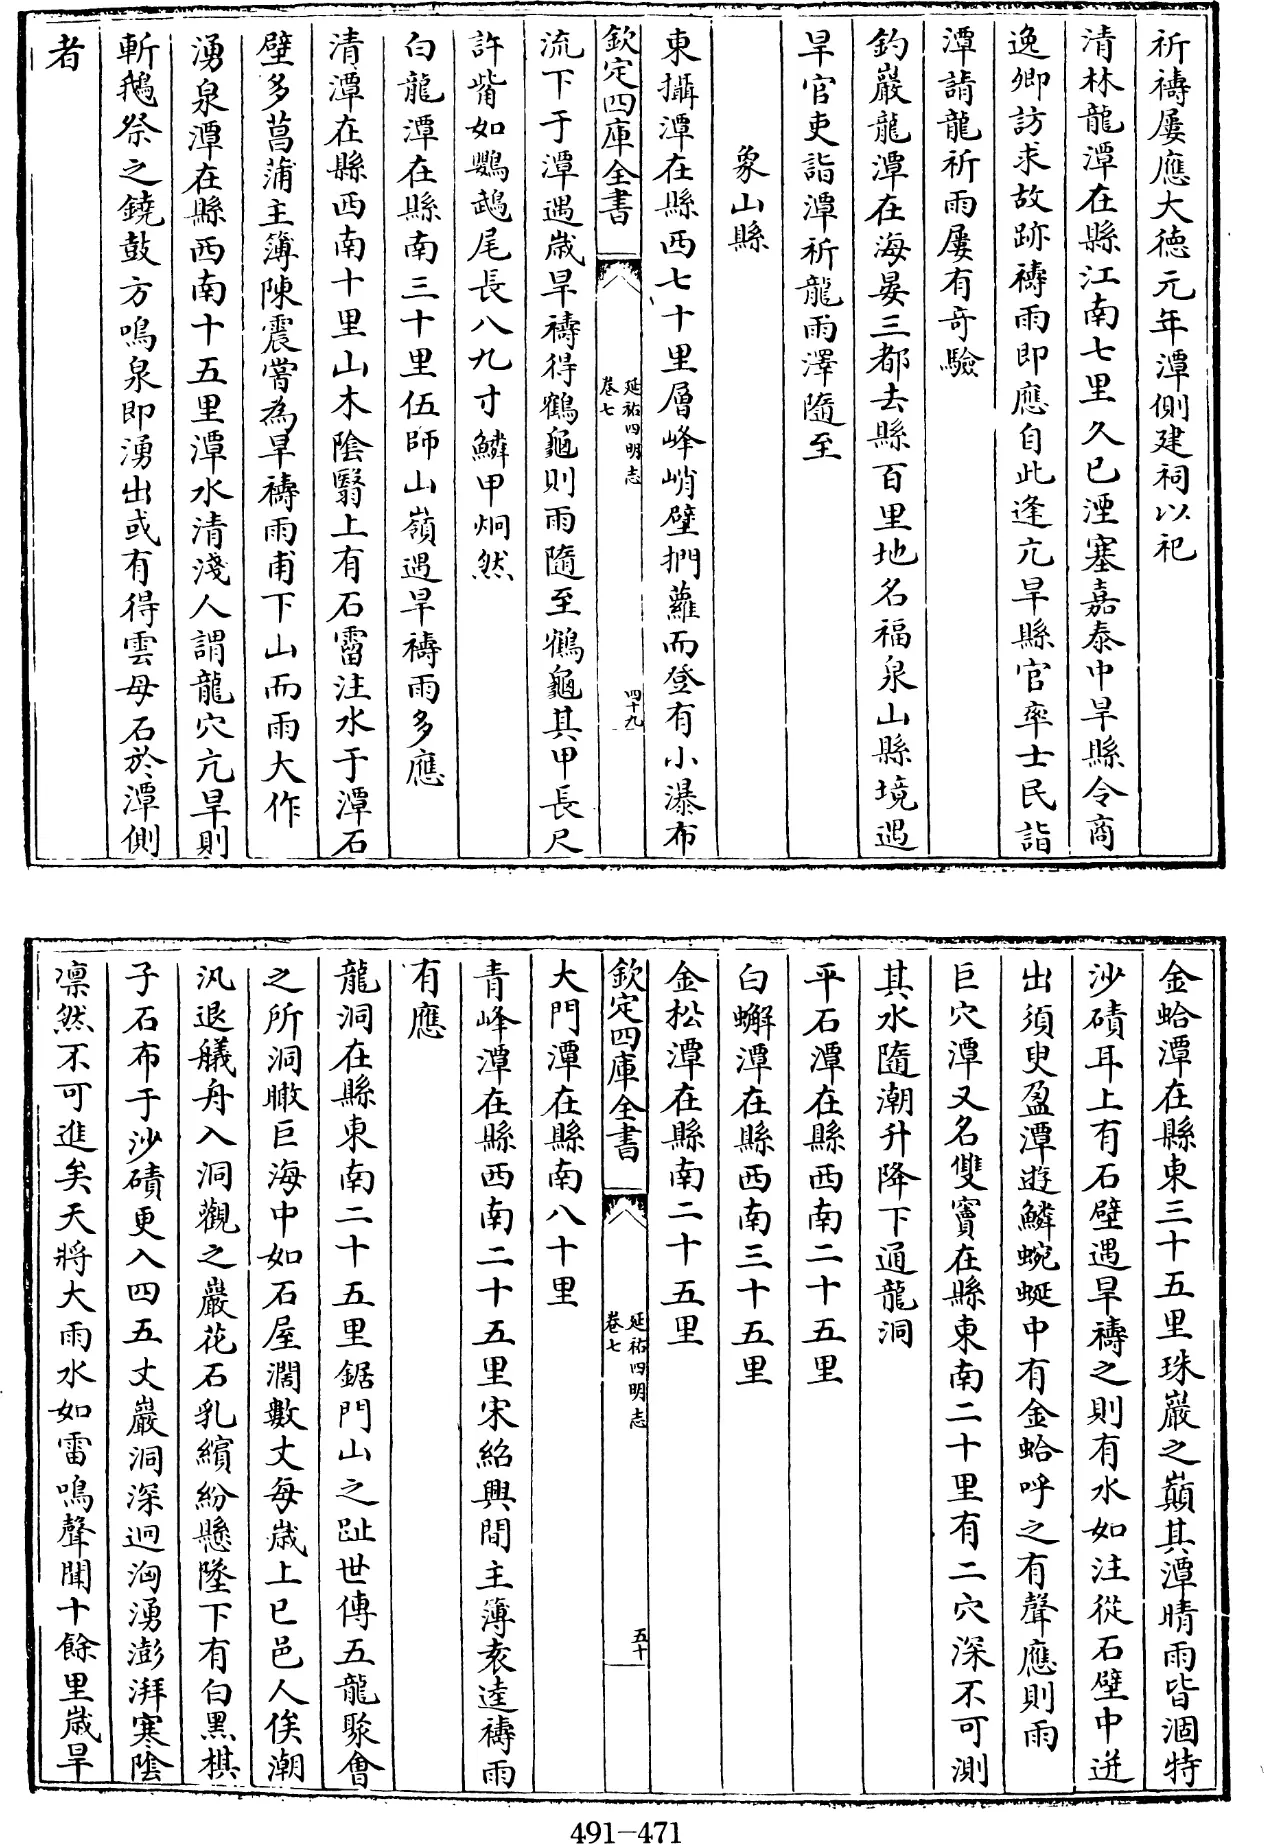 祈禱屢應大徳元年潭側建祠以祀
清林龍潭在縣江南七里久已湮塞嘉泰中旱縣令商
逸卿訪求故跡禱雨即應自此逢亢旱縣官率士民詣
潭請龍祈雨屢有奇驗
釣巖龍潭在海晏三都去縣百里地名福泉山縣境遇
旱官吏詣潭祈龍雨澤隨至
象山縣
東攝潭在縣西七十里層峰峭壁捫蘿而登有小瀑布
欽定四庫全書
延祐四明志
卷七
四十九
流下于潭遇歲旱禱得鶴龜則雨隨至鶴龜其甲長尺
許觜如鸚鵡尾長八九寸鱗甲炯然
白龍潭在縣南三十里伍師山嶺遇旱禱雨多應
清潭在縣西南十里山木陰翳上有石霤注水于潭石
壁多菖蒲主簿陳震嘗為旱禱雨甫下山而雨大作
湧泉潭在縣西南十五里潭水清淺人謂龍穴亢旱則
斬鵝祭之鐃鼓方鳴泉即湧出或有得雲母石於潭側
者
金蛤潭在縣東三十五里珠巖之巔其潭晴雨皆涸特
沙磧耳上有石壁遇旱禱之則有水如注從石壁中迸
出須臾盈潭遊鱗蜿蜒中有金蛤呼之有聲應則雨
巨穴潭又名雙竇在縣東南二十里有二穴深不可測
其水隨潮升降下通龍洞
平石潭在縣西南二十五里
白蠏潭在縣西南三十五里
金松潭在縣南二十五里
欽定四庫全書
延祐四明志
卷七
五十
大門潭在縣南八十里
青峰潭在縣西南二十五里宋紹興間主簿袁逵禱雨
有應
龍洞在縣東南二十五里鋸門山之趾世傳五龍聚會
之所洞瞰巨海中如石屋濶數丈每歲上巳邑人俟潮
汎退艤舟入洞觀之巖花石乳繽紛懸墜下有白黑棋
子石布于沙磧更入四五丈巖洞深迥洶湧澎湃寒陰
凛然不可進矣天將大雨水如雷鳴聲聞十餘里歲旱
491-471